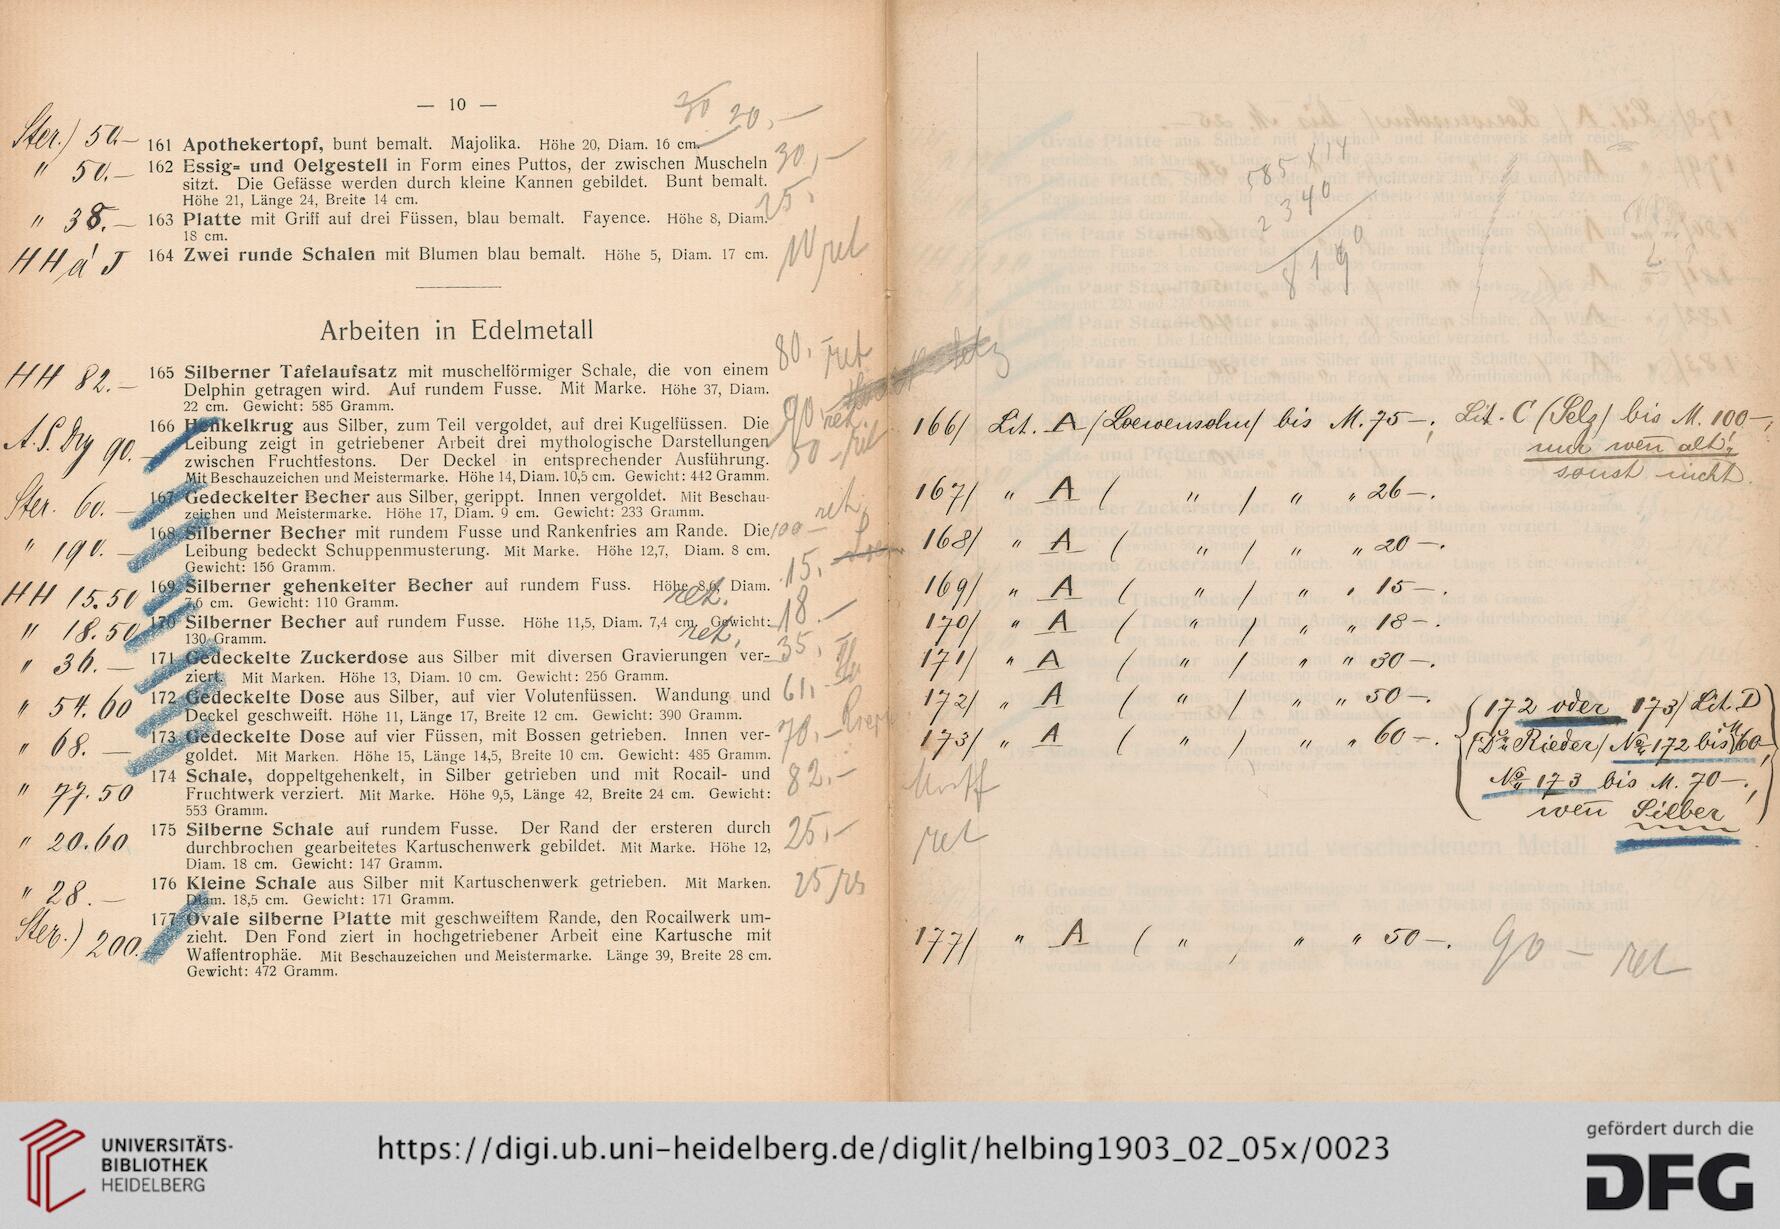 — 10 —
30 20,—
Ster.) 50.—
161 Apothekertopf, bunt bemalt. Majolika. Höhe 20, Diam. 16 cm.
" 50.—
162 Essig= und Oelgestell in Form eines Puttos, der zwischen Muscheln
sitzt. Die Gefässe werden durch kleine Kannen gebildet. Bunt bemalt.
Höhe 21, Länge 24, Breite 14 cm.
30,—
" 38.—
163 Platte mit Griff auf drei Füssen, blau bemalt. Fayence. Höhe 8, Diam.
18 cm.
25,
H H à J
164 Zwei runde Schalen mit Blumen blau bemalt. Höhe 5, Diam. 17 cm.
10 ret
Arbeiten in Edelmetall
HH 82.—
165 Silberner Tafelaufsatz mit muschelförmiger Schale, die von einem
Delphin getragen wird. Auf rundem Fusse. Mit Marke. Höhe 37, Diam.
22 cm. Gewicht: 585 Gramm.
80,— ret
A. S. Dry 90.—
166 Henkelkrug aus Silber, zum Teil vergoldet, auf drei Kugelfüssen. Die
Leibung zeigt in getriebener Arbeit drei mythologische Darstellungen
zwischen Fruchtfestons. Der Deckel in entsprechender Ausführung.
Mit Beschauzeichen und Meistermarke. Höhe 14, Diam. 10,5 cm. Gewicht: 442 Gramm.
90,— ret
Ster. 60.—
167 Gedeckelter Becher aus Silber, gerippt. Innen vergoldet. Mit Beschau-
zeichen und Meistermarke. Höhe 17, Diam. 9 cm. Gewicht: 233 Gramm.
50 — ret
" 190.—
168 Silberner Becher mit rundem Fusse und Rankenfries am Rande. Die
Leibung bedeckt Schuppenmusterung. Mit Marke. Höhe 12,7, Diam. 8 cm.
Gewicht: 156 Gramm.
100 — ret
HH 15.50
169 Silberner gehenkelter Becher auf rundem Fuss. Höhe 8,6, Diam.
7,6 cm. Gewicht: 110 Gramm.
15,—
ret.
" 18.50
170 Silberner Becher auf rundem Fusse. Höhe 11,5, Diam. 7,4 cm. Gewicht:
130 Gramm.
18.—
ret,
" 36.—
171 Gedeckelte Zuckerdose aus Silber mit diversen Gravierungen ver-
ziert. Mit Marken. Höhe 13, Diam. 10 cm. Gewicht: 256 Gramm.
35,
" 54.60
172 Gedeckelte Dose aus Silber, auf vier Volutenfüssen. Wandung und
Deckel geschweift. Höhe 11, Länge 17, Breite 12 cm. Gewicht: 390 Gramm.
61,—
" 68.—
173 Gedeckelte Dose auf vier Füssen, mit Bossen getrieben. Innen ver-
goldet. Mit Marken. Höhe 15, Länge 14,5, Breite 10 cm. Gewicht: 485 Gramm.
70,—
" 77.50
174 Schale, doppeltgehenkelt, in Silber getrieben und mit Rocail- und
Fruchtwerk verziert. Mit Marke. Höhe 9,5, Länge 42, Breite 24 cm. Gewicht:
553 Gramm.
82.—
" 20.60
175 Silberne Schale auf rundem Fusse. Der Rand der ersteren durch
durchbrochen gearbeitetes Kartuschenwerk gebildet. Mit Marke. Höhe 12,
Diam. 18 cm. Gewicht: 147 Gramm.
25,—
" 28.—
176 Kleine Schale aus Silber mit Kartuschenwerk getrieben. Mit Marken.
Diam. 18,5 cm. Gewicht: 171 Gramm.
25
Ster.) 200.
177 Ovale silberne Platte mit geschweiftem Rande, den Rocailwerk um-
zieht. Den Fond ziert in hochgetriebener Arbeit eine Kartusche mit
Waffentrophäe. Mit Beschauzeichen und Meistermarke. Länge 39, Breite 28 cm.
Gewicht: 472 Gramm.
585 x 14
2340
8190
166/ Lit. A / Loewensohn / bis M. 75 —; Lit. C (Selz) bis M. 100—,
nur wen̄ alt!;
sonst nicht.
167/ " A ( " / " " 26 —.
168/ " A ( " / " " 20 —.
169/ " A ( " / " " 15 —.
170/ " A ( " / " " 18 —.
171/ " A ( " / " " 30 —.
172/ " A ( " / " " 50 —.
173/ " A ( " / " " 60 —.
172 oder 173/ Lit. D
(Dr. Rieder) No. 172 bis M. 60—,
No. 173 bis M. 70—,
wen̄ Silber
ret
177/ " A ( " / " " 50 —. 90 — ret
UNIVERSITÄTS-
BIBLIOTHEK
HEIDELBERG
https://digi.ub.uni-heidelberg.de/diglit/helbing1903_02_05x/0023
gefördert durch die
DFG